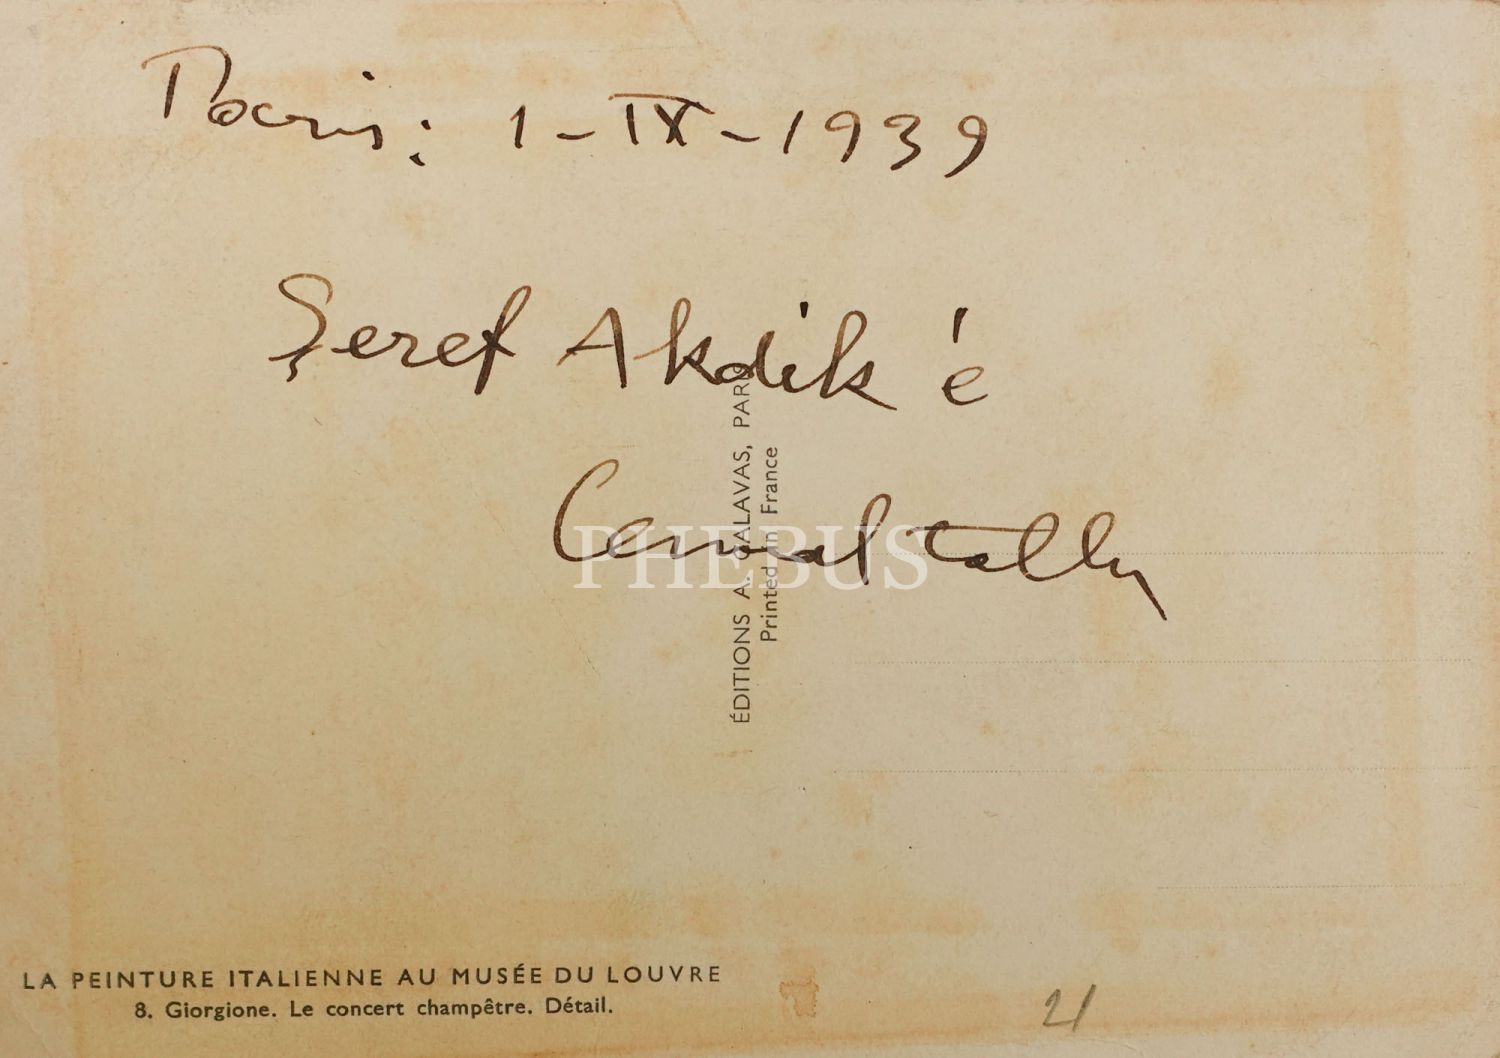 Paris: 1-IX-1939
Şeref Akdik'e
Cemal Tollu
ÉDITIONS A. CALAVAS, PARIS
Printed in France
PHEBUS
LA PEINTURE ITALIENNE AU MUSÉE DU LOUVRE
8. Giorgione. Le concert champêtre. Détail.
21